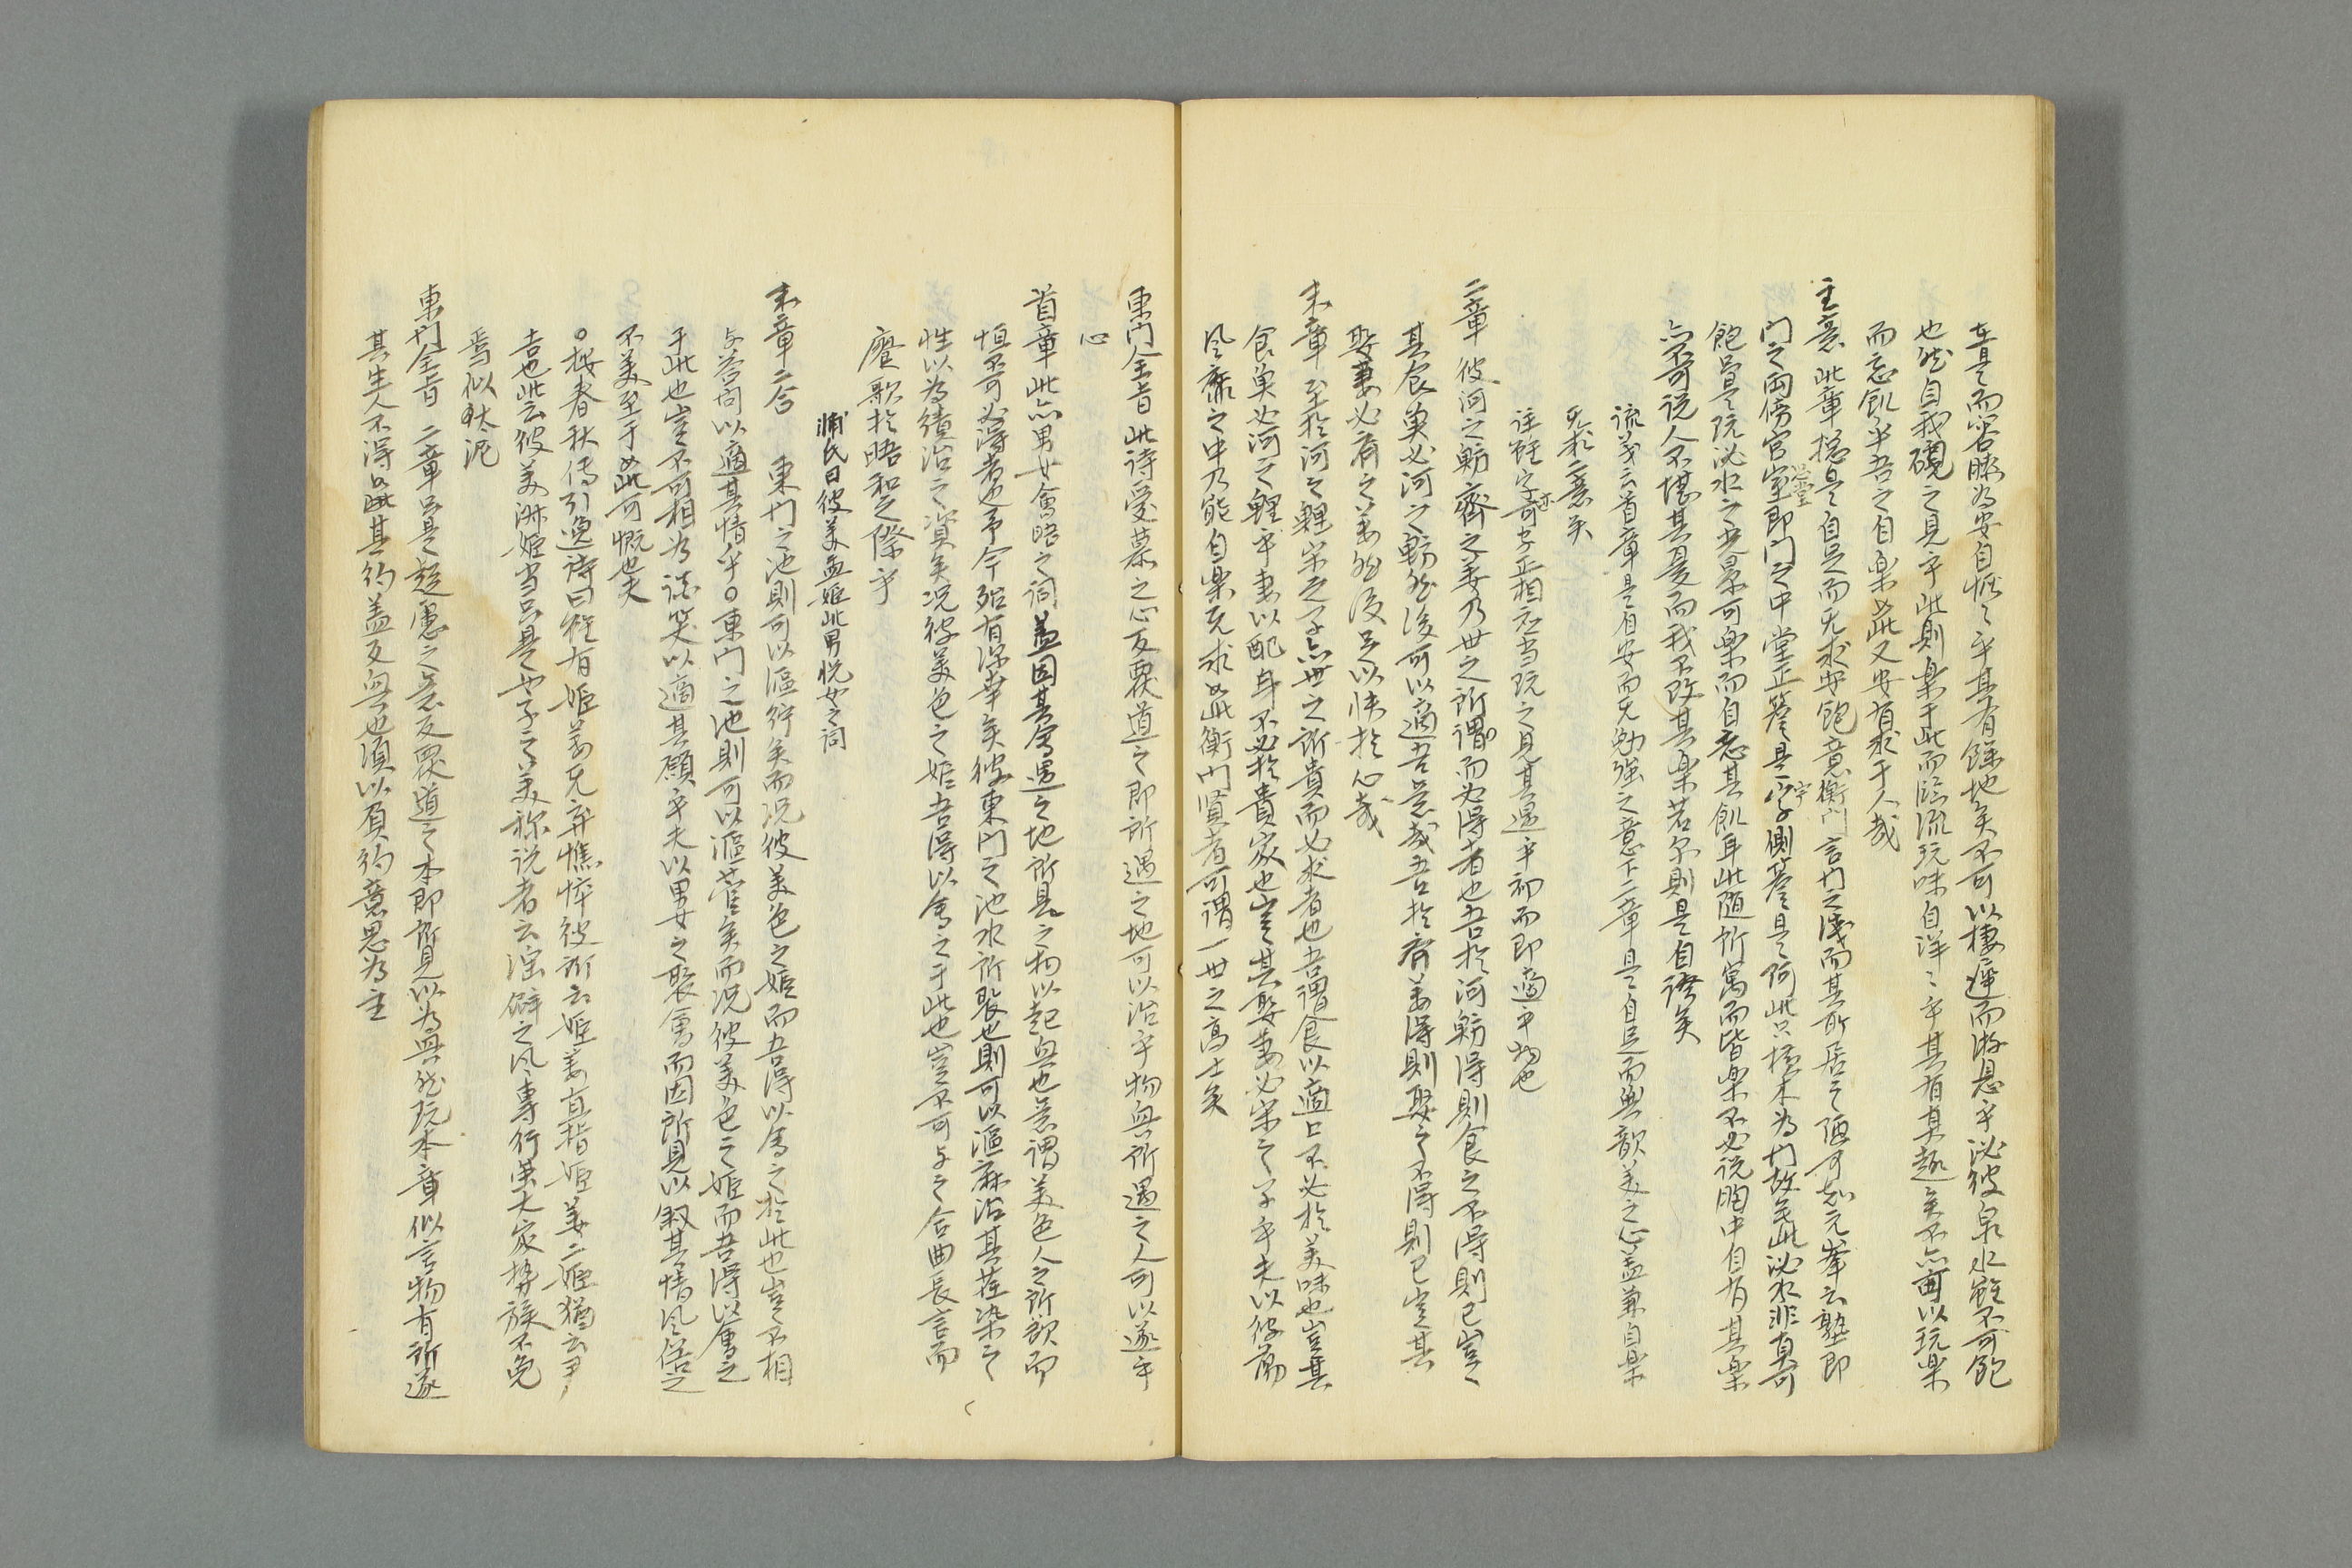 而容膝為安自恬〻乎其有餘地矣不可以棲遲而游息乎泌彼泉水雖不可飽
也然自我觀之見乎此則楽于此而臨流玩味自洋〻乎其有真趣矣不亦可以玩楽
而忘飢乎吾之自楽如此又安有求于人哉
主意 此章揔是自足而无求安飽意衡門言門之淺而其所居之陋可知元峯云塾即
門之両傍官室即門之中堂正簷是宇側簷是阿此只横木為門故无此泌水非真可
飽是玩泌水之景可楽而自忘其飢耳此随所寓而皆楽不必说胸中自有其楽
亦不可说人不堪其憂而我不改其楽若尔則是自誇矣
流義云首章是自安而无勉强之意下二章是自足而無歆美之心盖兼自楽
无求二意矣
註雖字可字正相应当玩之見其遇乎初而即適乎物也
二章 彼河之魴齊之姜乃世之所謂而必得者也吾於河魴得則食之不得則已豈〻
其食魚必河之魴然後可以適吾意哉吾於齊姜得則娶之不得則已豈其
娶妻必齊之姜然後足以快於心哉
末章 至於河之鯉宋之子亦世之所貴而必求者也吾謂食以適口不必於美味也豈其
食魚必河之鯉乎妻以配身不必於貴家也豈其娶妻必宋之子乎夫以彼
風靡之中乃能自楽无求如此衡門賢者可謂一世之高士矣
東门全旨 此诗爱慕之心反覆道之即所遇之地可以治乎物與所遇之人可以遂乎
心
首章 此亦男女會晤之词盖因其會遇之地所見之物以起興也意謂美色人之所欲而
恒不可必得者也乎今殆有深幸矣彼東门之池水所聚也則可以漚麻治其荏染之
性以為績治之資矣况彼美色之姬吾得以會之于此也豈不可与之合曲長言而
賡歌於晤和之際乎
浦氏曰彼美孟姬此男悦女之词
末章二合 東门之池則可以漚紵矣而况彼美色之姬而吾得以會之於此也豈不相
与荅问以適其情乎○東门之池則可以漚菅矣而况彼美色之姬而吾得以會之
于此也豈不可相為談笑以適其願乎夫以男女之聚會而因所見以叙其情风俗之
不美至于如此可慨也夫
○按春秋傳引逸诗曰雖有姬姜无弃憔悴彼所云姬姜直指姬姜二姓猶云
吉也此云彼美淑姬当只是女子之美称说者云淫僻之风專行世大家势族不免
焉似太泥
東門全旨 二章只是起慮之意反覆道之本即所見以為興然玩本章似言物有所遂
其生人不得如其約盖反興也須以負約意思為主